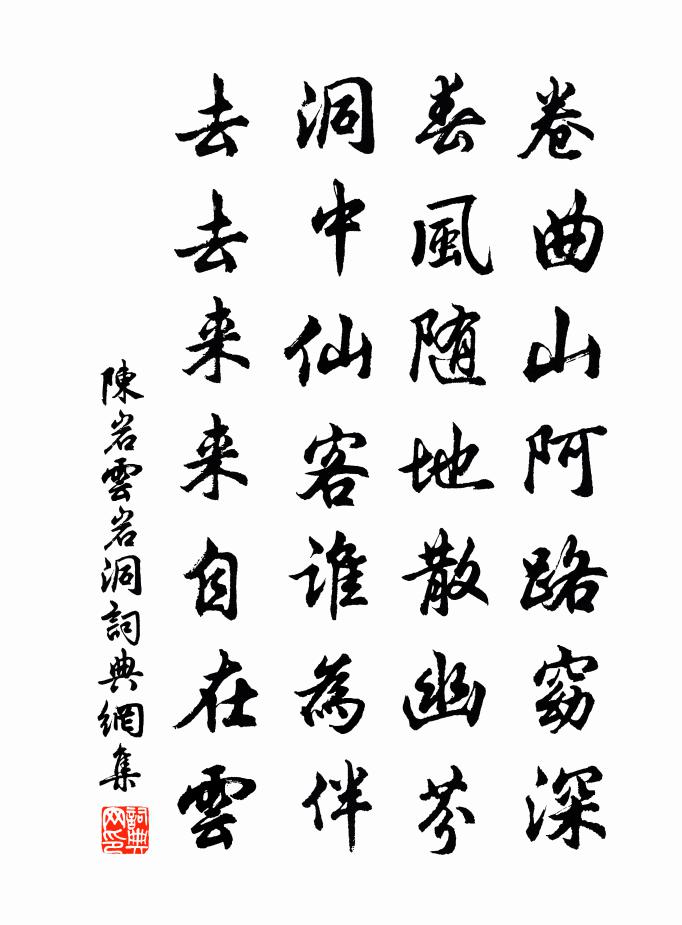 卷曲山阿路窈深
春風随地散幽芬
洞中仙客誰為伴
去去来来自在雲
陳岩雲岩洞詞典網集
詞典
网印